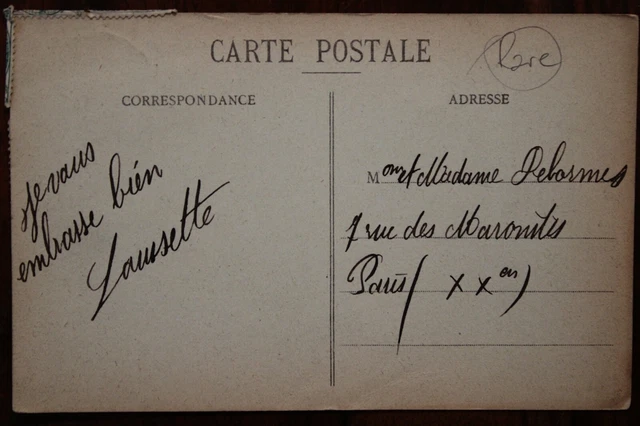 CARTE POSTALE
Rare
CORRESPONDANCE
ADRESSE
Je vous
embrasse bien
Lousette
Mon et Madame Delormes
7 rue des Maronites
Paris (XXen)